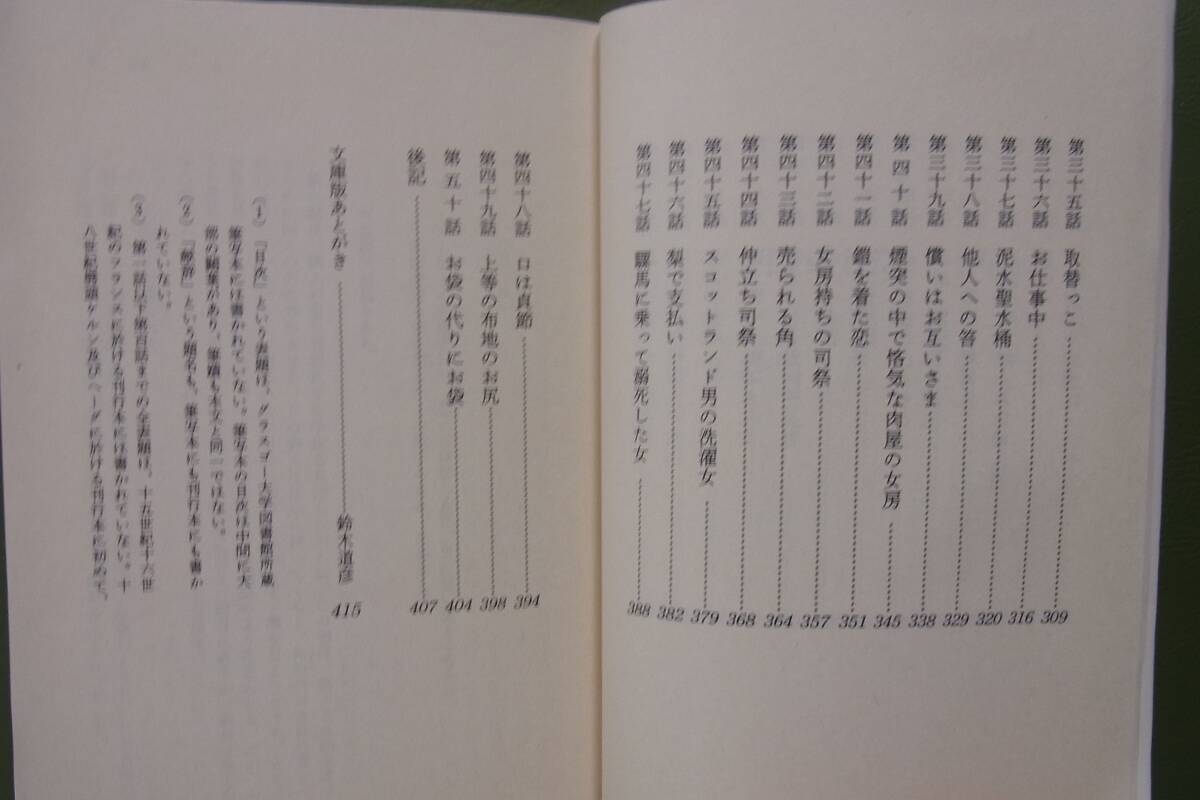 第三十五話 取替っこ 309
第三十六話 お仕事中 316
第三十七話 泥水聖水桶 320
第三十八話 他人への答 329
第三十九話 償いはお互いさま 338
第四十話 煙突の中で悋気な肉屋の女房 345
第四十一話 鎧を着た恋 351
第四十二話 女房持ちの司祭 357
第四十三話 売られる角 364
第四十四話 仲立ち司祭 368
第四十五話 スコットランド男の洗濯女 379
第四十六話 梨で支払い 382
第四十七話 騾馬に乗って溺死した女 388
第四十八話 口は貞節 394
第四十九話 上等の布地のお尻 398
第五十話 お袋の代りにお袋 404
後記 407
文庫版あとがき 鈴木道彦 415
(1) 『目次』という表題は、グラスゴー大学図書館所蔵
筆写本には書かれていない。筆写本の目次は中間に大
部の
があり、筆蹟も本文と同一ではない。
(2) 『献辞』という題名も、筆写本にも刊行本にも書か
れていない。
(3) 第一話以下第百話までの全表題は、十五世紀十六世
紀のフランスに於ける刊行本には書かれていない。十
八世紀
ケルン及びハーグに於ける刊行本に初めて、